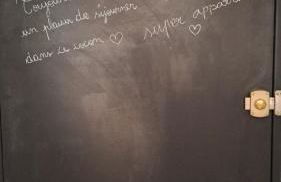 Toujours
un plaisir de séjourner
dans ce cocon ♡ super appart
♡